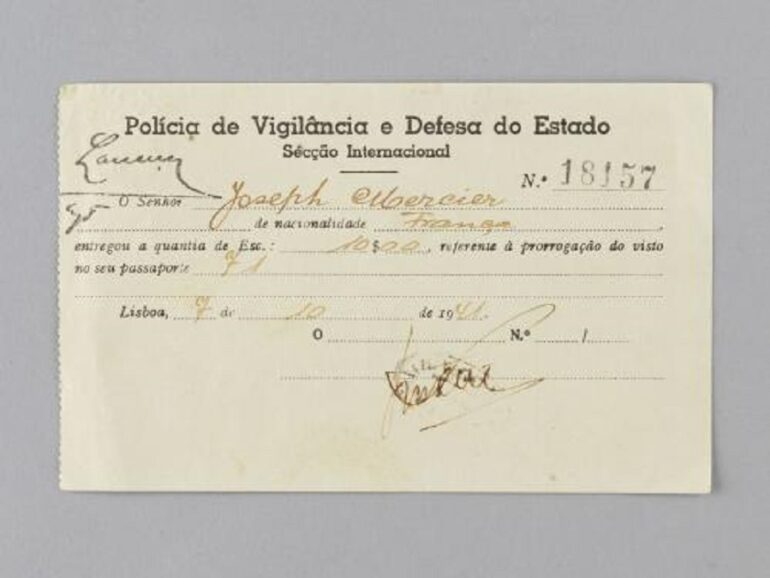 Polícia de Vigilância e Defesa do Estado
Sécção Internacional
N.º 18157
O Senhor Joseph Mercier
de nacionalidade França
entregou a quantia de Esc.: 10$00, referente à prorrogação do visto
no seu passaporte 71
Lisboa, 7 de 10 de 1941.
O N.º /